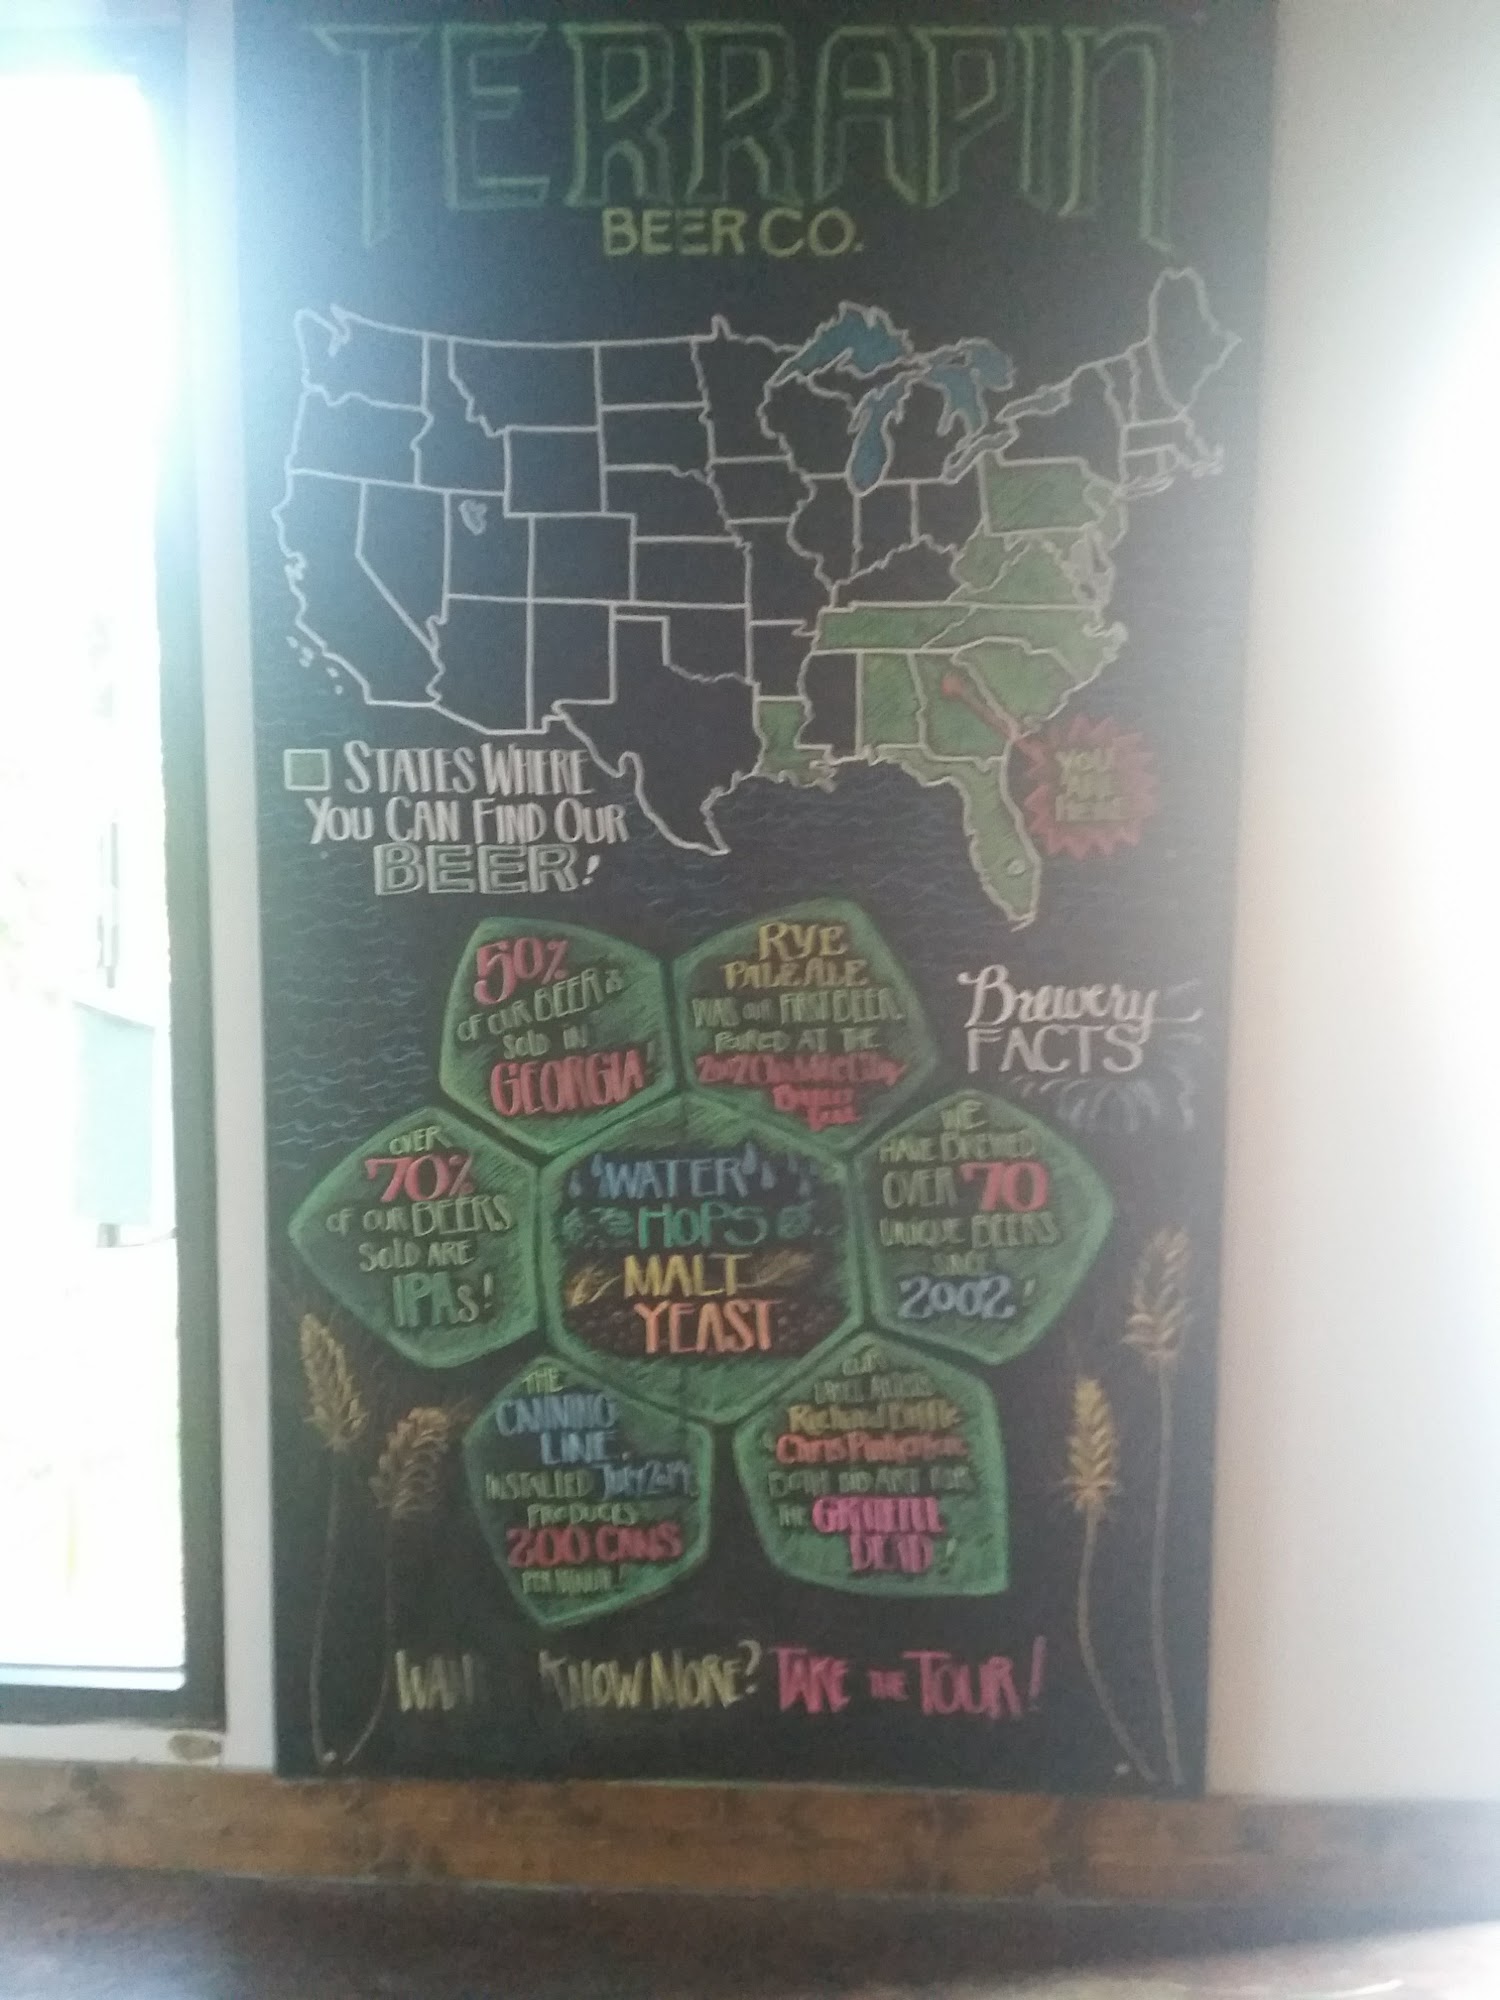 TERRAPIN
BEER CO.
STATES WHERE
YOU CAN FIND OUR
BEER!
YOU
ARE
HERE
Brewery
FACTS
50%
OF OUR BEER IS
SOLD IN
GEORGIA!
RYE
PALE ALE
WAS OUR FIRST BEER
POURED AT THE
2002 Classic City
OVER
70%
OF OUR BEERS
SOLD ARE
IPAs!
WATER
HOPS
MALT
YEAST
WE
HAVE BREWED
OVER 70
UNIQUE BEERS
SINCE
2002!
THE
CANNING
LINE,
INSTALLED JULY 2014,
PRODUCES
200 CANS
PER MINUTE!
OUR
Richard Biffle
& Chris Pinkerton
BOTH DID ART FOR
THE GRATEFUL
DEAD!
KNOW MORE? TAKE THE TOUR!